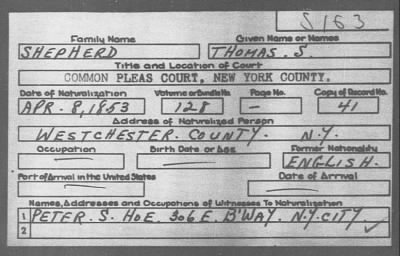 S 163
Family Name Given Name or Names
SHEPHERD THOMAS. S.
Title and Location of Court
COMMON PLEAS COURT, NEW YORK COUNTY.
Date of Naturalization Volume or Bundle No. Page No. Copy of Record No.
APR. 8, 1853 128 — 41
Address of Naturalized Person
WESTCHESTER. COUNTY. N.Y.
Occupation Birth Date or Age Former Nationality
— — ENGLISH.
Port of Arrival in the United States Date of Arrival
— —
Names, Addresses and Occupations of Witnesses To Naturalization
1 PETER. S. HOE. 306 E. B'WAY. N.Y. CITY.
2